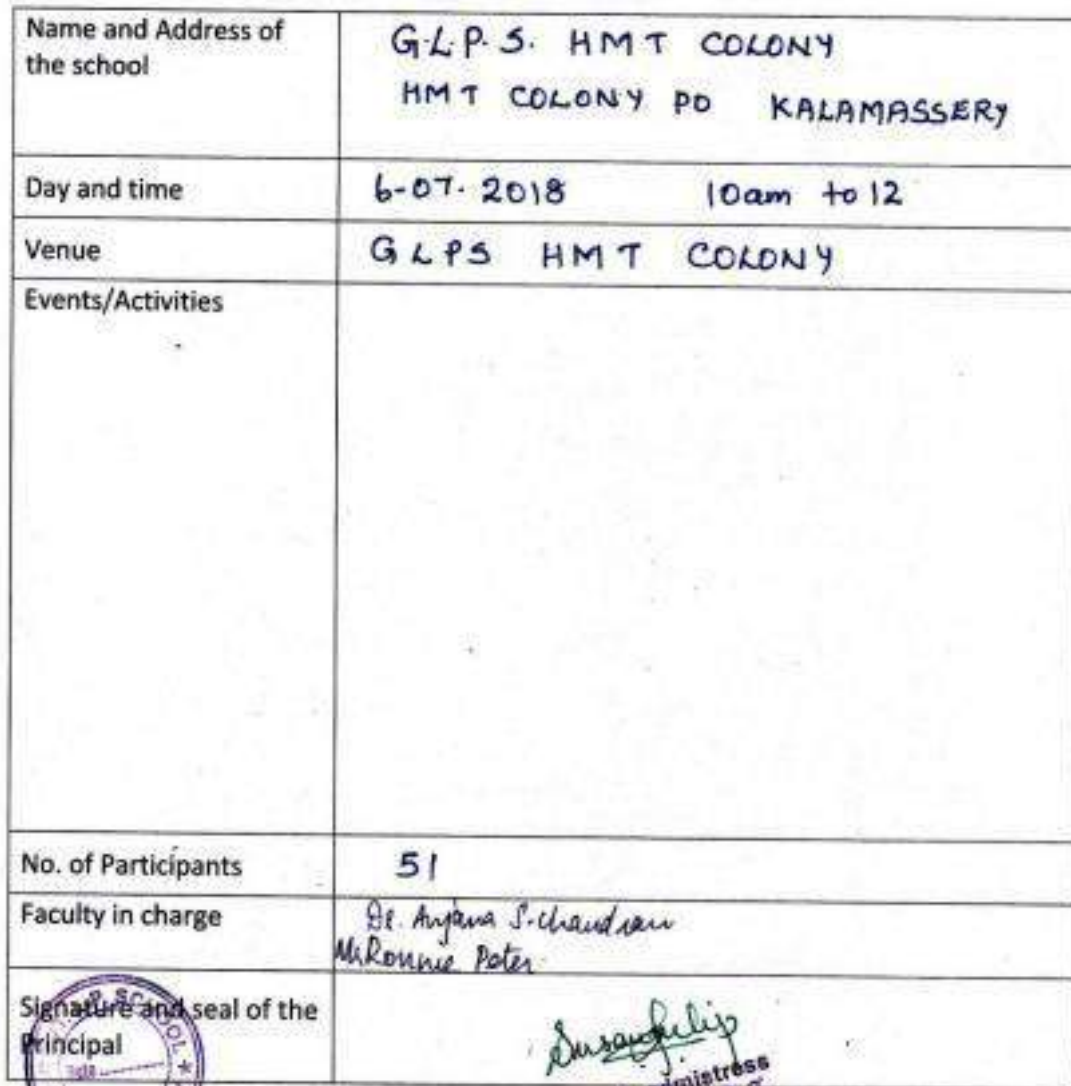 Name and Address of
the school
G.L.P.S. HMT COLONY
HMT COLONY PO KALAMASSERY
Day and time
6-07-2018 10am to 12
Venue
GLPS HMT COLONY
Events/Activities
No. of Participants
51
Faculty in charge
Dr. Anjana S. Chandran
Mr Ronnie Peter
Signature and seal of the
Principal
SCHOOL